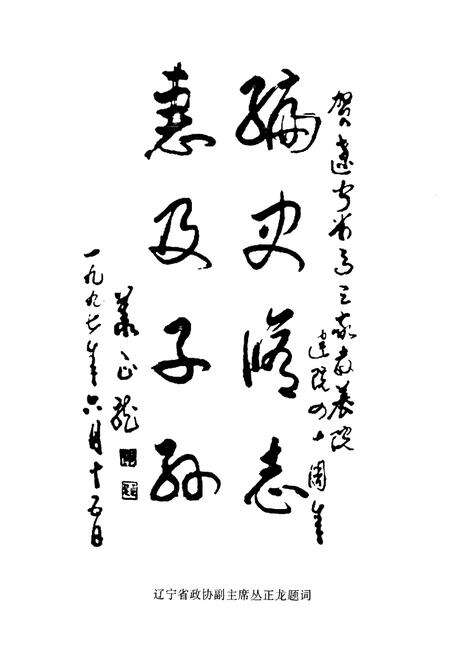 贺遼宁省马三家教養院
建院四十周年
编史修志
惠及子孙
叢正龍
一九九七年六月十五日
辽宁省政协副主席丛正龙题词